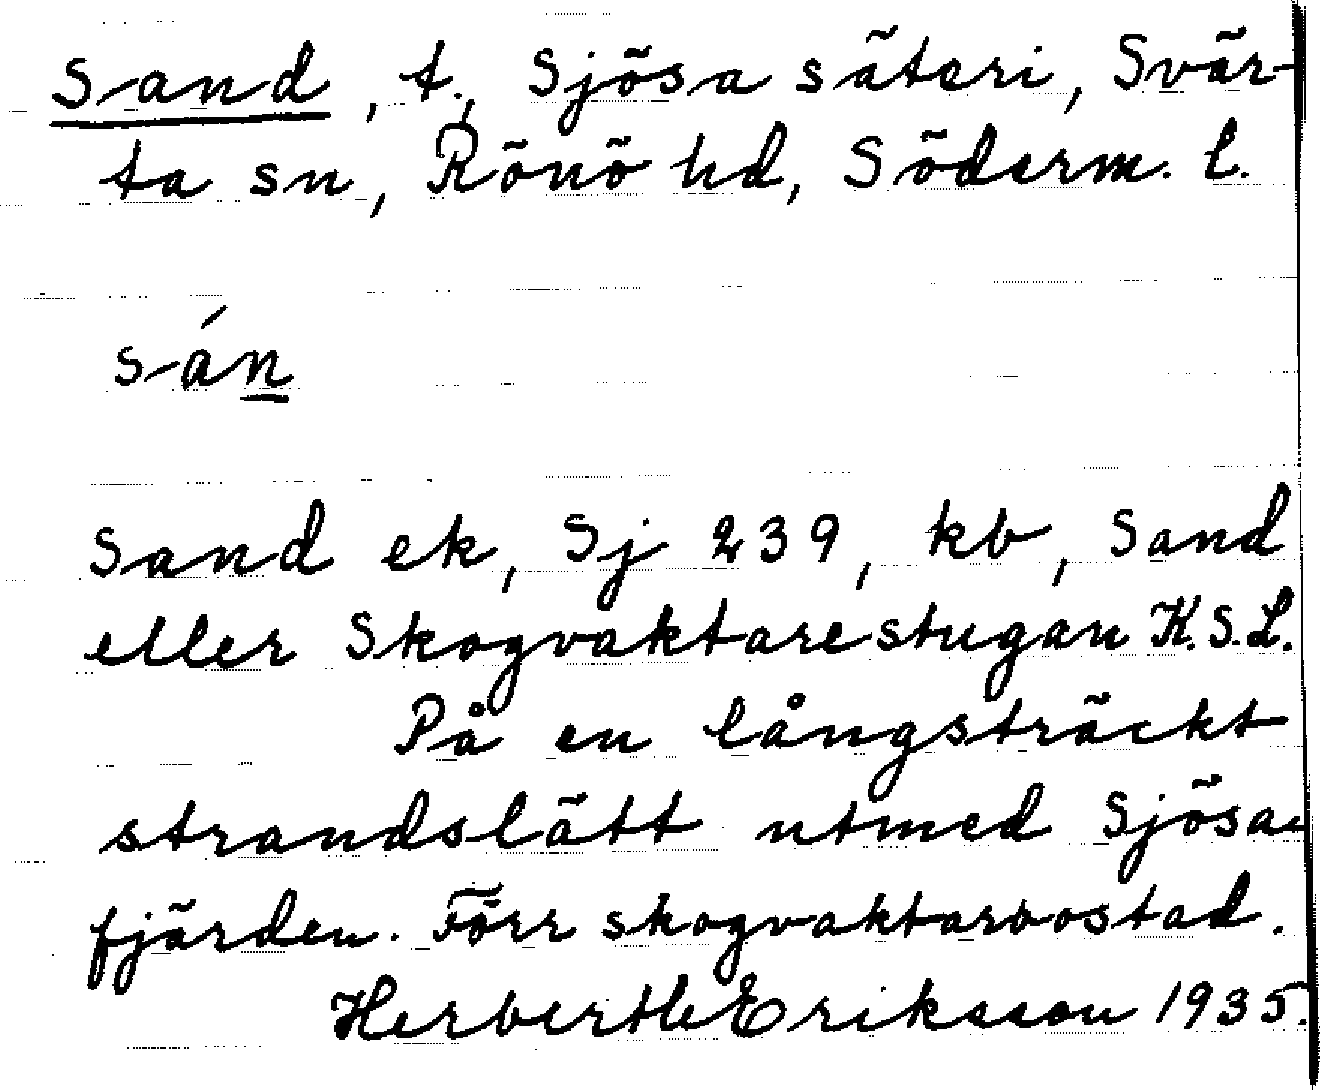 Sand, t., Sjösa säteri, Svär-
ta sn, Rönö hd, Söderm. l.
sán
Sand ek, Sj 239, kb, Sand
eller Skogvaktarestugan K.S.L.
På en långsträckt
strandslätt utmed Sjösa-
fjärden. Förr skogvaktarbostad.
Herberth Eriksson 1935.